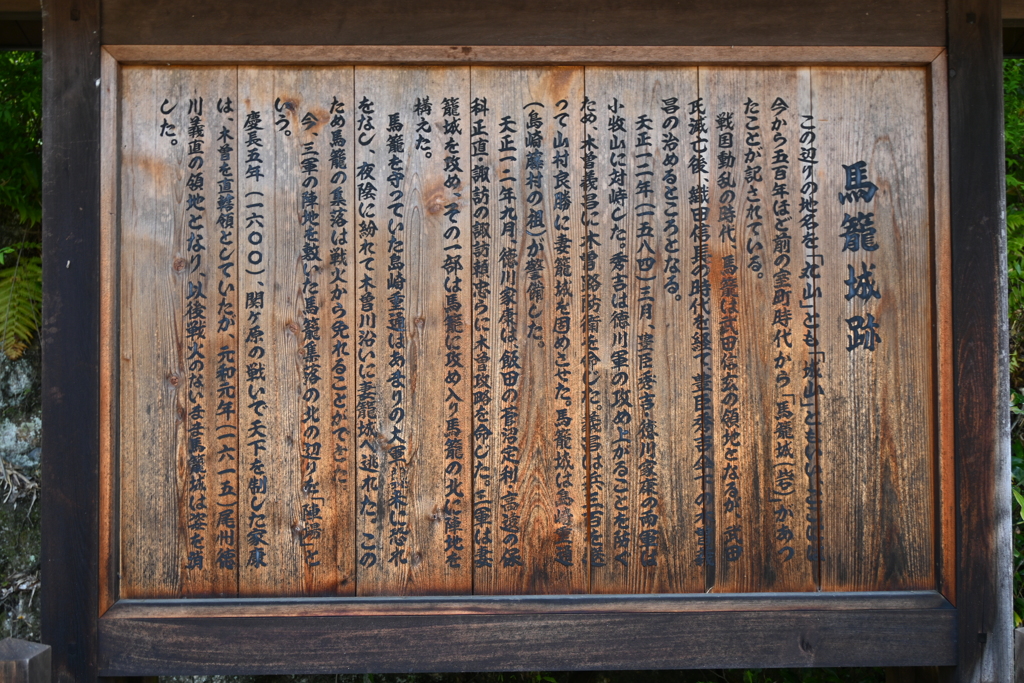 馬籠城跡
この辺りの地名を「丸山」とも「城山」ともいい、ここには
今から五百年ほど前の室町時代から「馬籠城(砦)」があっ
たことが記されている。
戦国動乱の時代、馬籠は武田信玄の領地となるが、武田
氏滅亡後、織田信長の時代を経て、豊臣秀吉傘下の木曽義
昌の治めるところとなる。
天正一二年(一五八四)三月、豊臣秀吉・徳川家康の両軍は
小牧山に対峙した。秀吉は徳川軍の攻め上がることを防ぐ
ため、木曽義昌に木曽路防衛を命じた。義昌は兵三百を送
って山村良勝に妻籠城を固めさせた。馬籠城は島崎重通
(島崎藤村の祖)が警備した。
天正一二年九月、徳川家康は、飯田の菅沼定利・高遠の保
科正直・諏訪の諏訪頼忠らに木曽攻略を命じた。三軍は妻
籠城を攻め、その一部は馬籠に攻め入り馬籠の北に陣地を
構えた。
馬籠を守っていた島崎重通はあまりの大軍襲来に恐れ
をなし、夜陰に紛れて木曽川沿いに妻籠城へ逃れた。この
ため馬籠の集落は戦火から免れることができた。
今、三軍の陣地を敷いた馬籠集落の北の辺りを「陣場」と
いう。
慶長五年(一六〇〇)、関ヶ原の戦いで天下を制した家康
は、木曽を直轄領としていたが、元和元年(一六一五)尾州徳
川義直の領地となり、以後戦火のないまま馬籠城は姿を消
した。